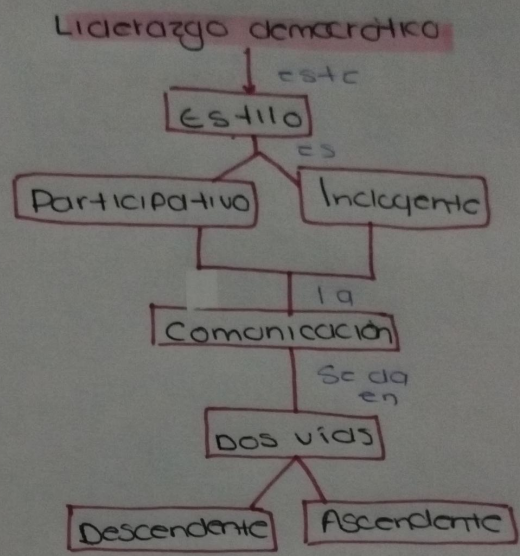 Liderazgo democrático
este
Estilo
es
Participativo
Incluyente
la
Comunicación
se da
en
Dos vías
Descendente
Ascendente